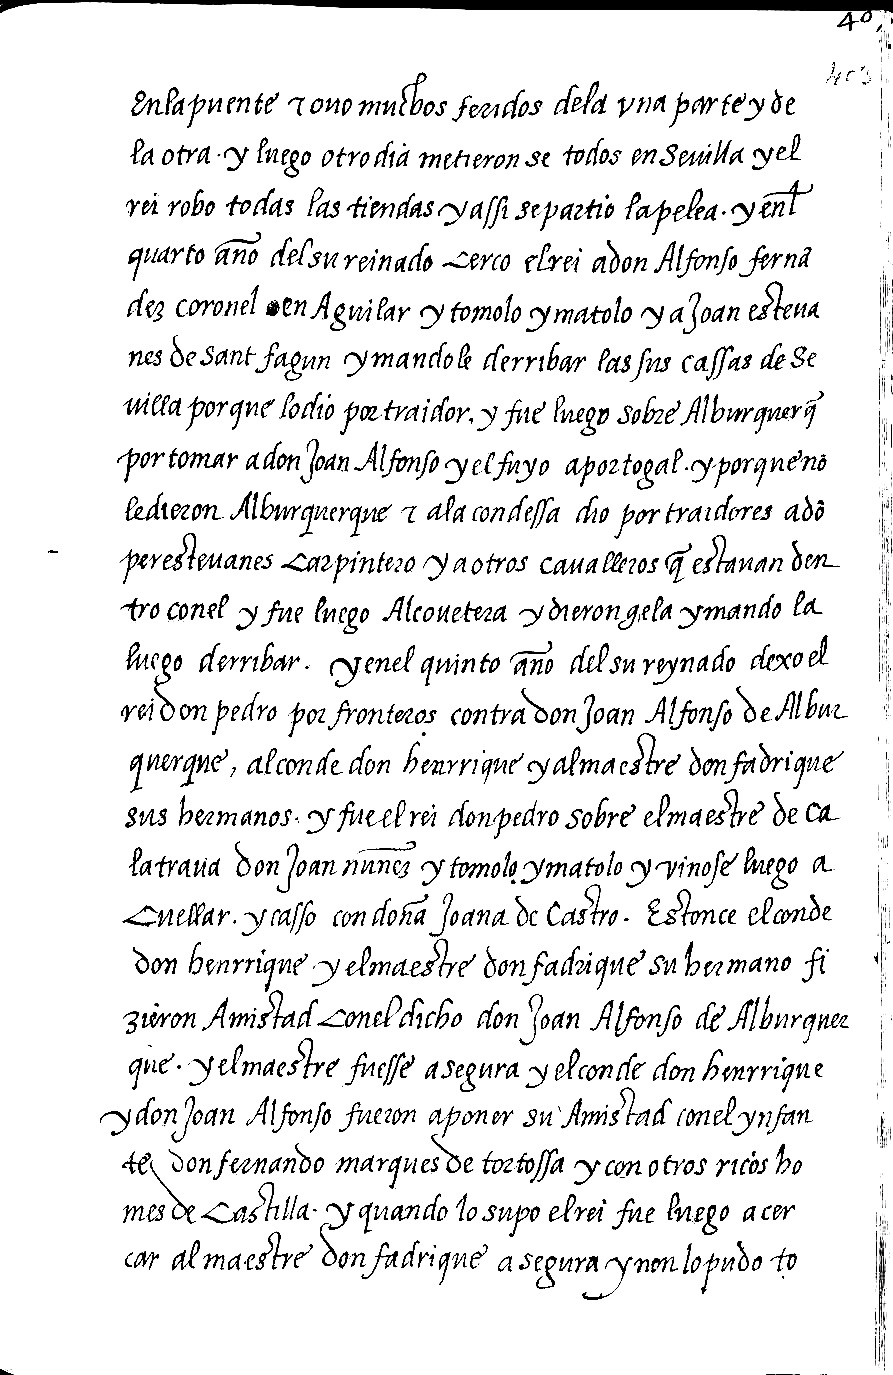 40
403
Enla puente τ ouo muchos feridos dela vna parte y de
la otra . y luego otro dia metieron se todos en Seuilla y el
rei robo todas las tiendas y assi se partio la pelea . y enl
quarto año del su reinado Cerco el rei adon Alfonso fernã
dez coronel en Aguilar y tomolo y matolo y a Joan esteua
nes de Sant fagun y mandole derribar las sus cassas de Se
uilla porque lo dio por traidor, y fue luego sobre Alburquerq̃
por tomar a don Joan Alfonso y el fuyo a portogal . y porque nõ
le dieron Alburquerque τ ala condessa dio por traidores adõ
per esteuanes Carpintero y a otros caualleros q̃ estauan den
tro conel y fue luego Alcouetera y dierongela y mando la
luego derribar . y enel quinto año del su reynado dexo el
rei Don pedro por fronteros contra Don Joan Alfonso de Albur
querque, al conde don henrrique y al maestre don fadrique
sus hermanos . y fue el rei don pedro sobre el maestre de Ca
latraua Don Joan nuñez y tomolo y matolo y vinose luego a
Cuellar . y casso con doña Joana de Castro . Estonce el conde
Don henrrique y el maestre don fadrique su hermano fi
zieron Amistad Conel dicho don Joan Alfonso de Alburquer
que . y el maestre fuesse a segura y el conde don henrrique
y don Joan Alfonso fueron a poner su Amistad conel ynfan
te Don fernando marques de tortossa y con otros ricos ho
mes de Castilla . y quando lo supo el rei fue luego a cer
car al maestre Don fadrique a segura y non lo pudo to